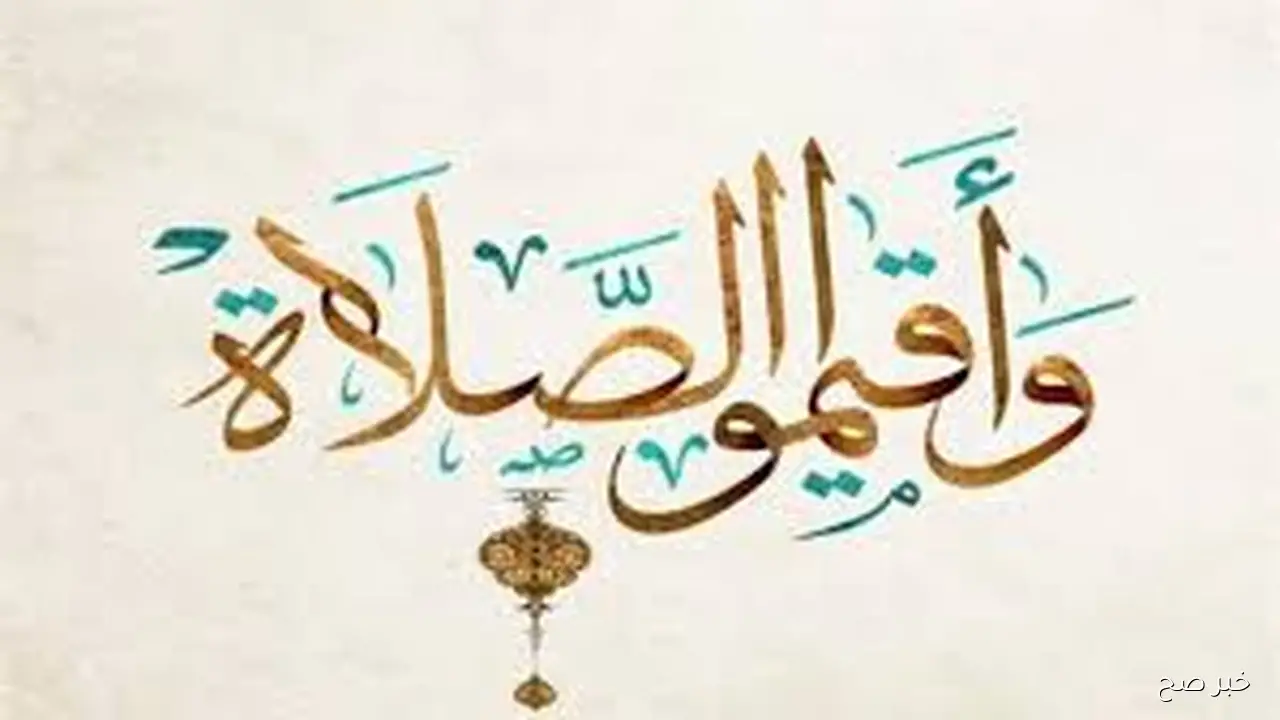 وَأَقِيمُوا الصَّلَاةَ
خبر صح